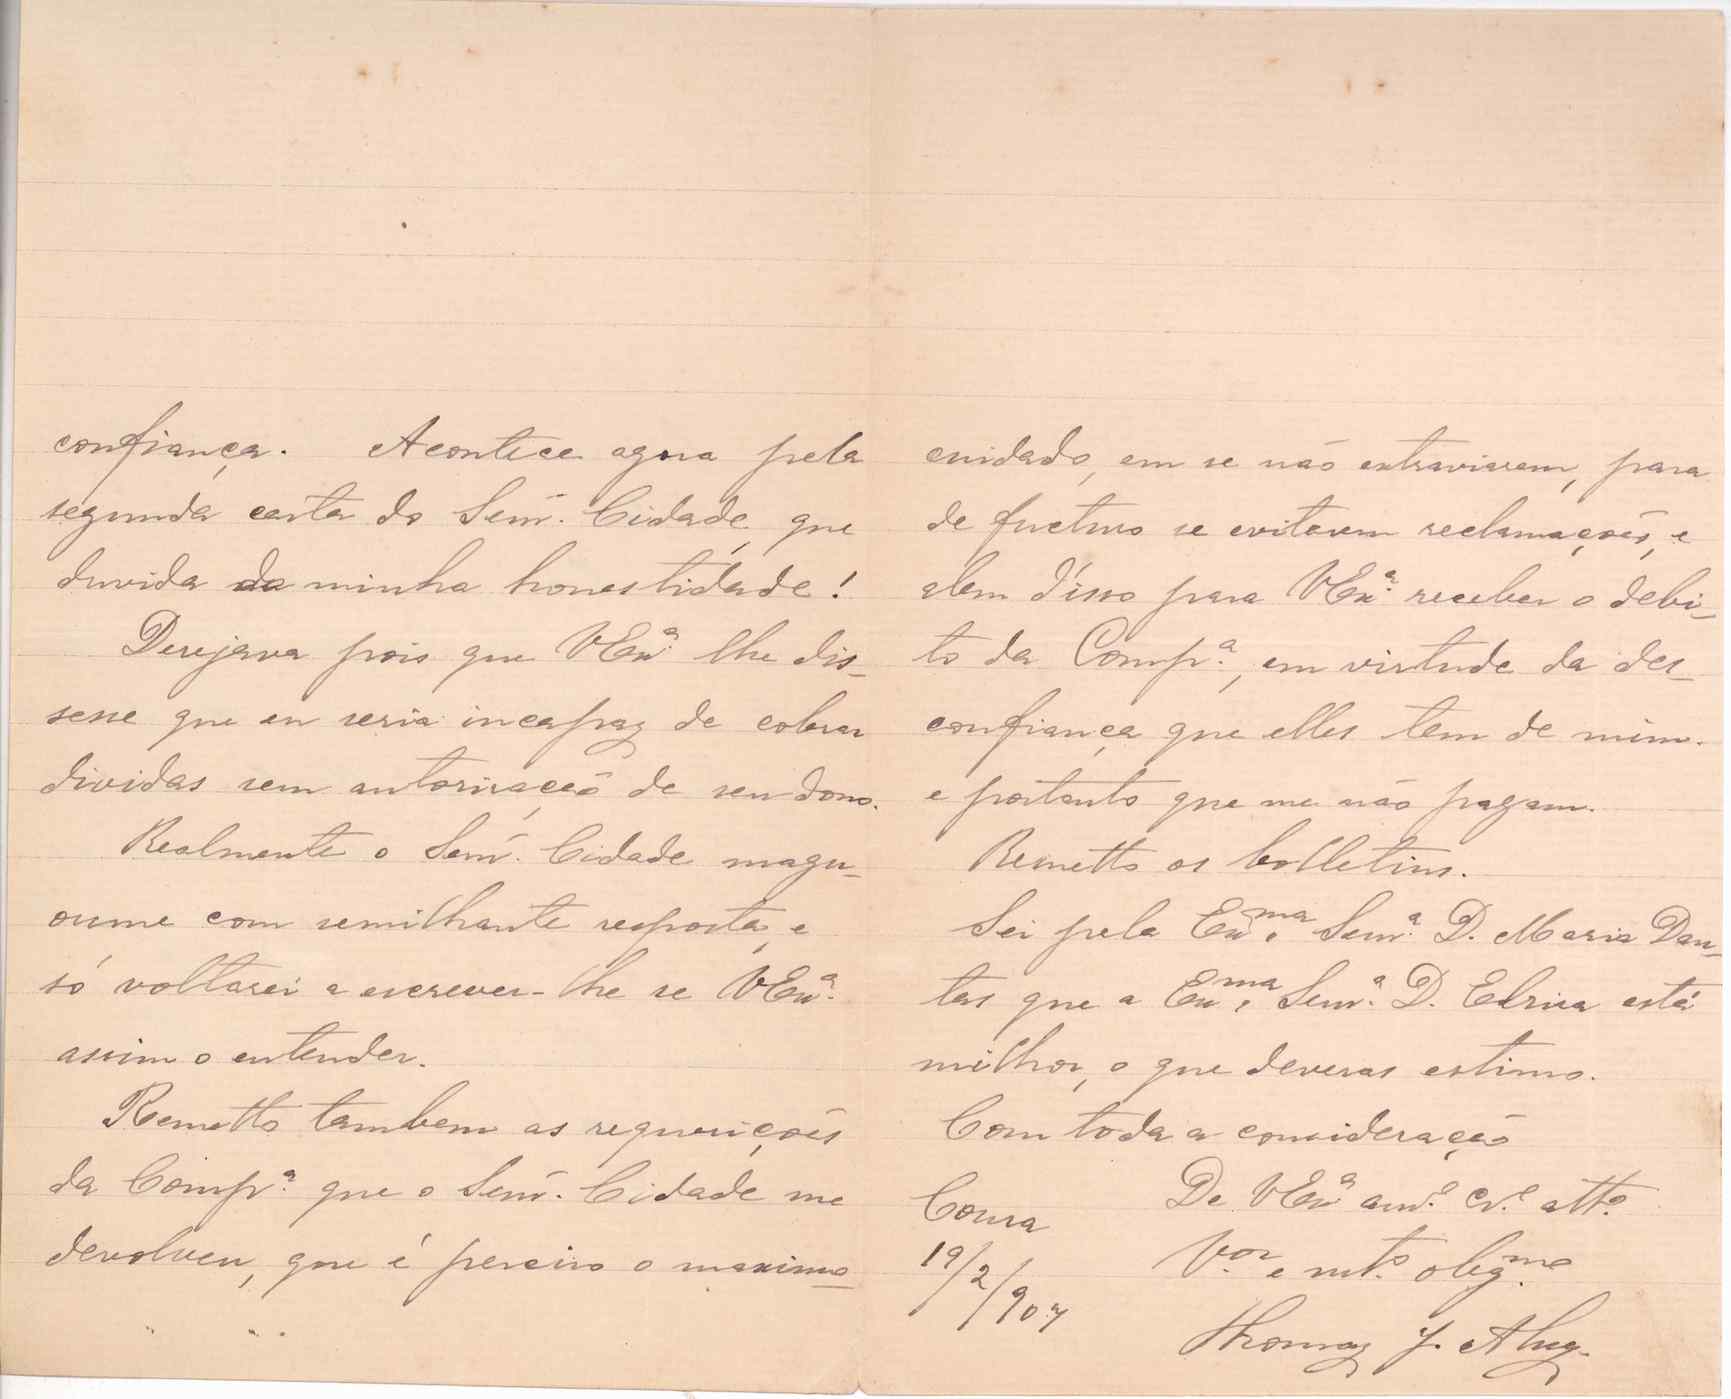 confiança. Acontece agora pela
segunda carta do Senr. Cidade, que
duvida da minha honestidade!
Desejava pois que VExª. lhe dis-
sesse que eu seria incapaz de cobrar
dividas sem autorisação de seu dono.
Realmente o Senr. Cidade magu-
oume com semilhante resposta, e
só voltarei a escrever-lhe se VExª.
assim o entender.
Remetto tambem as requesições
da Compª. que o Senr. Cidade me
devolveu, que é perciso o maximo
cuidado, em se não extraviarem, para
de fucturo se evitarem reclamações, e
alem d'isso para VExª. receber o debi-
to da Compª., em virtude da des-
confiança que elles tem de mim.
e portanto que me não pagam.
Remetto os bolletins.
Sei pela Exma. Senrª. D. Maria Dan-
tas que a Exma. Senrª. D. Elvira está
milhor, o que deveras estimo.
Com toda a consideração
De VExª amº. crº. attº.
Vor. e mtº. obigmo.
Coura
19/2/907
Thomaz J. Alvz.